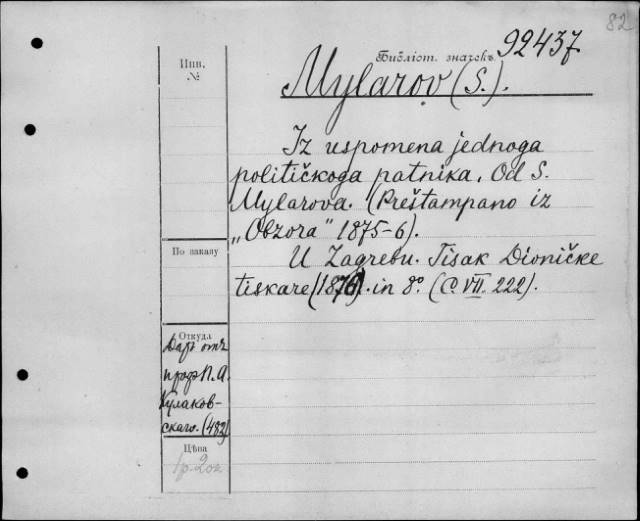 82
Инв.
№
Библіот. значекъ
92437
Mylarov (S.).
Iz uspomena jednoga
političkoga patnika. Od S.
Mylarova. (Preštampano iz
„Obzora" 1875-6).
По заказу
U Zagrebu. Tisak Dioničke
tiskare (1876). in 8° (C. VII. 222).
Откуда
Даръ отъ
проф. П. А.
Кулаков-
скаго. (482)
Цѣна
1р. 20к